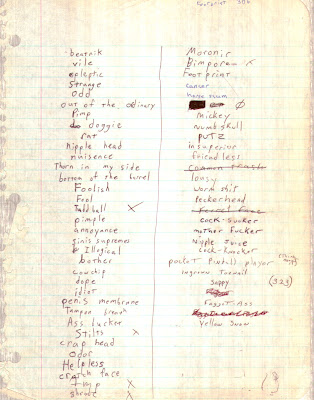 Footprint 326
beatnik
vile
epleptic
Strange
odd
out of the ordinary
Pimp
doggie
rat
Nipple head
nuisence
Thorn in my side
bottom of the barrel
Foolish
Fool
Tadd ball X
pimple
annoyance
ginis supremes
Illogical
bother
cowchip
dope
idiot
penis membrane
Tampon breath
Ass lucker
Stilts X
crap head
odor
Helpless
crotch face
X
shrubt X
Moronic
Dimpora
Footprint
cancer
horse
Ø
Mickey
Numbskull
PUTZ
insuperior
friendless
Common
lousy
worm shit
Peckerhead
cock-sucker
mother Fucker
Nipple Juice
cock-knocker
pocket Pinball player
ingrown Toenail
sappy (323)
Faggot-Ass
Yellow Snow